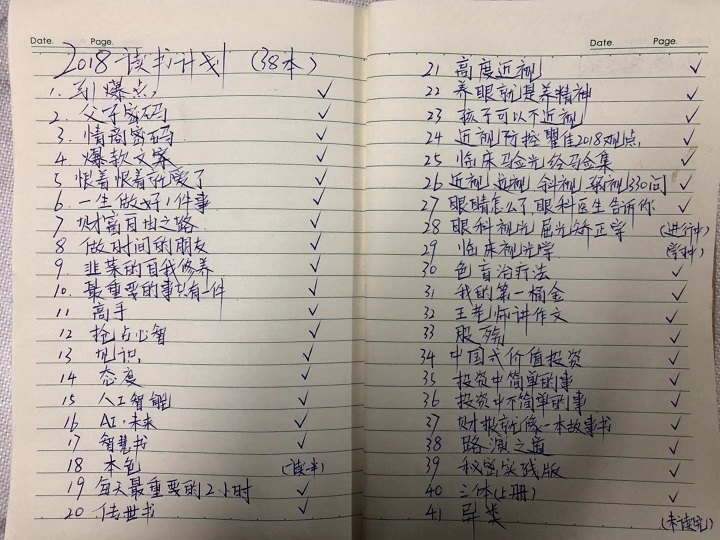 Date. Page.
2018读书计划 (38本)
1. 引爆点 ✓
2. 父子密码 ✓
3. 情商密码 ✓
4 爆款文案 ✓
5 恨着恨着就爱了 ✓
6 一生做好1件事 ✓
7 财富自由之路 ✓
8 做时间的朋友 ✓
9 韭菜的自我修养 ✓
10. 最重要的事只有一件 ✓
11 高手 ✓
12 抢占心智 ✓
13 见识 ✓
14 态度 ✓
15 人工智能 ✓
16 AI·未来 ✓
17 智慧书 ✓
18 本色 (读一半)
19 每天最重要的2小时 ✓
20 传世书 ✓
Date. Page.
21 高度近视 ✓
22 养眼就是养精神 ✓
23 孩子可以不近视 ✓
24 近视防控瞿佳2018观点 ✓
25 临床 ✓
26 近视 远视 斜视 弱视330问 ✓
27 眼睛怎么了,眼科医生告诉你 ✓
28 眼科视光 屈光矫正学 (进行中)
29 临床视光学
30 色盲治疗法 ✓
31 我的第一桶金 ✓
32 王老师讲作文 ✓
33 ✓
34 中国式价值投资 ✓
35 投资中简单的事 ✓
36 投资中不简单的事 ✓
37 财报就像一本故事书 ✓
38 路演之道 ✓
39 秘密实践版 ✓
40 三体(上册) ✓
41 异类 (未读完)